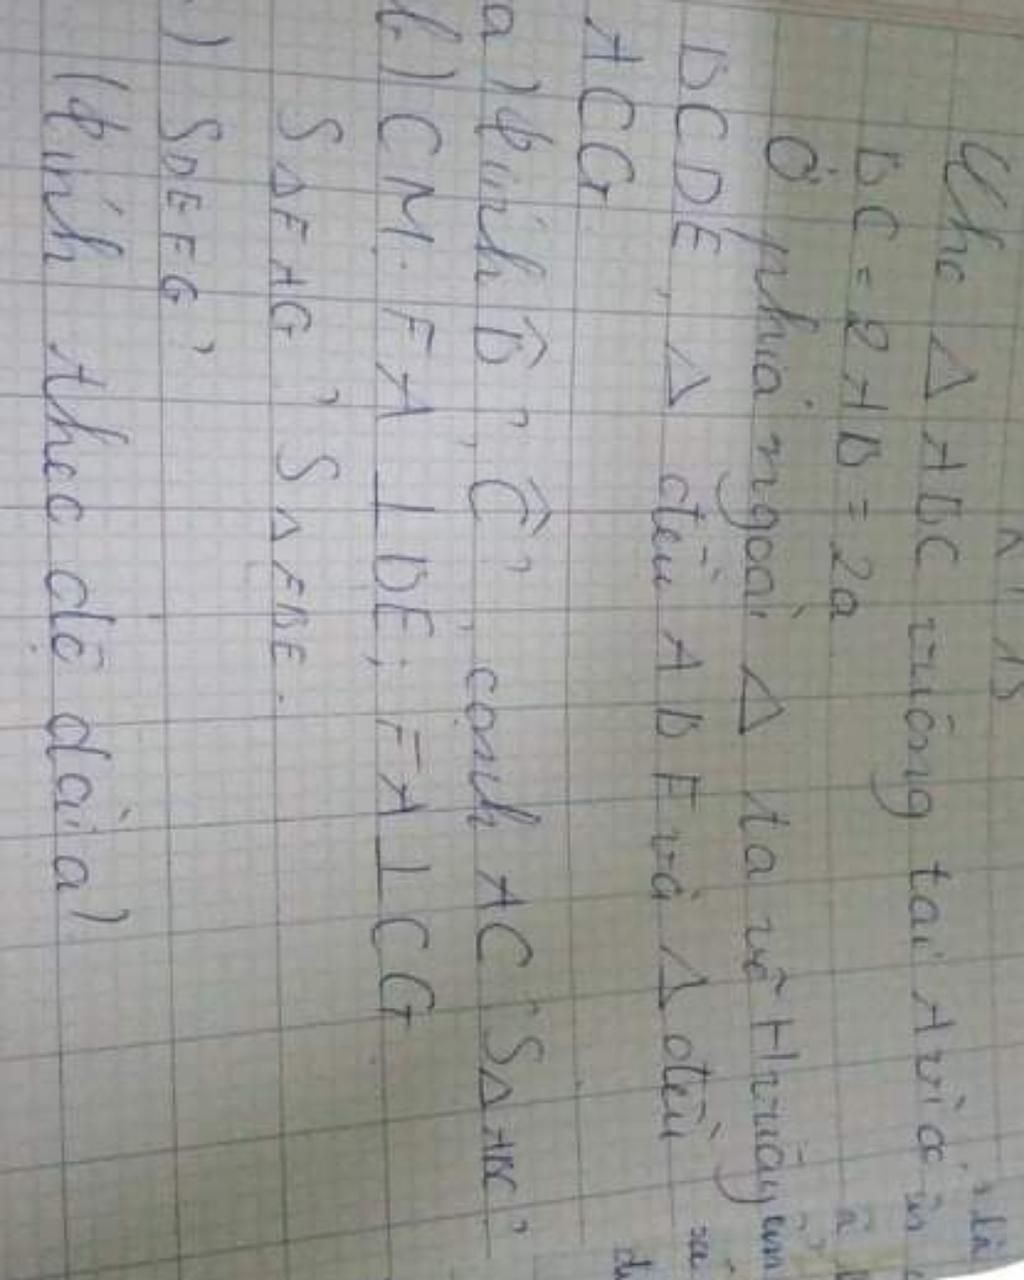 Cho Δ ABC vuông tại A và
BC = 2AB = 2a
Ở phía ngoài Δ ta vẽ Hvuông
BCDE, Δ đều ABF và Δ đều
ACG
a) Tính B̂?, Ĉ?, cạnh AC; SΔABC?
b.) CM: FA ⊥ BE; FA ⊥ CG
SΔFAG? SΔFBE.
.) SDEFG?
(Tính theo độ dài a)